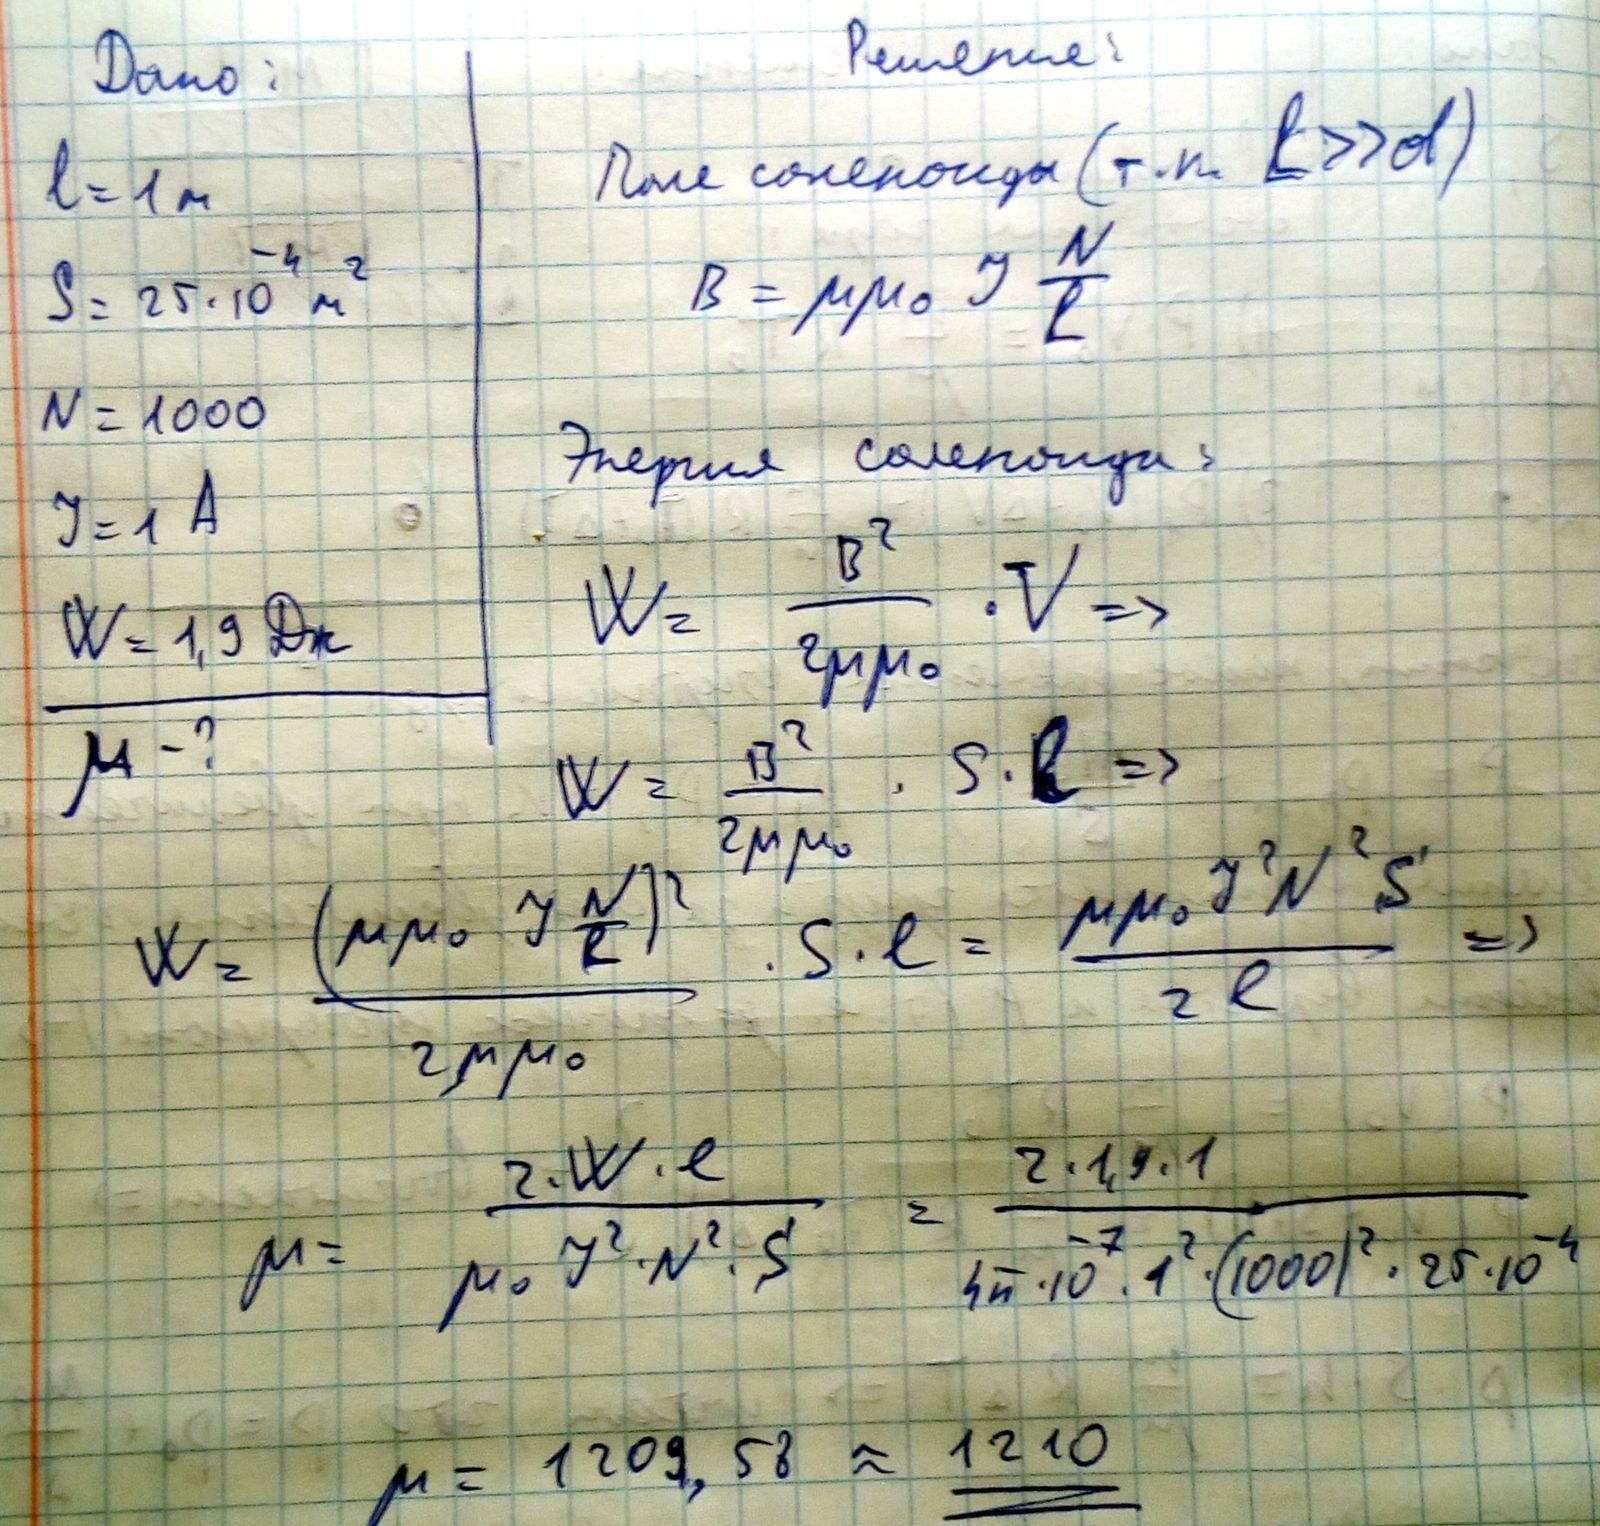 Дано:
l = 1 м
S = 25·10⁻⁴ м²
N = 1000
J = 1 А
W = 1,9 Дж
μ - ?
Решение:
Поле соленоида (т.к. l >> d)
B = μμ₀ J N/l
Энергия соленоида:
W = B²/2μμ₀ · V =>
W = B²/2μμ₀ · S · l =>
W = (μμ₀ J N/l)²/2μμ₀ · S · l = μμ₀ J² N² S/2l =>
μ = 2·W·l/μ₀ J²·N²·S = 2·1,9·1/4π·10⁻⁷·1²·(1000)²·25·10⁻⁴
μ = 1209,58 ≈ 1210